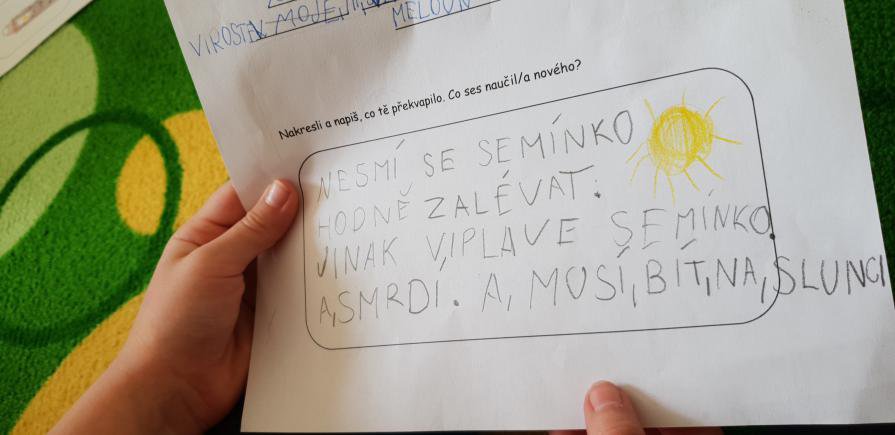 VIROSTAL MOJE
MELOUN
Nakresli a napiš, co tě překvapilo. Co ses naučil/a nového?
NESMÍ SE SEMÍNKO
HODNĚ ZALÉVAT.
JINAK VIPLAVE SEMÍNKO.
A, SMRDÍ. A, MUSÍ, BÍT, NA, SLUNCI